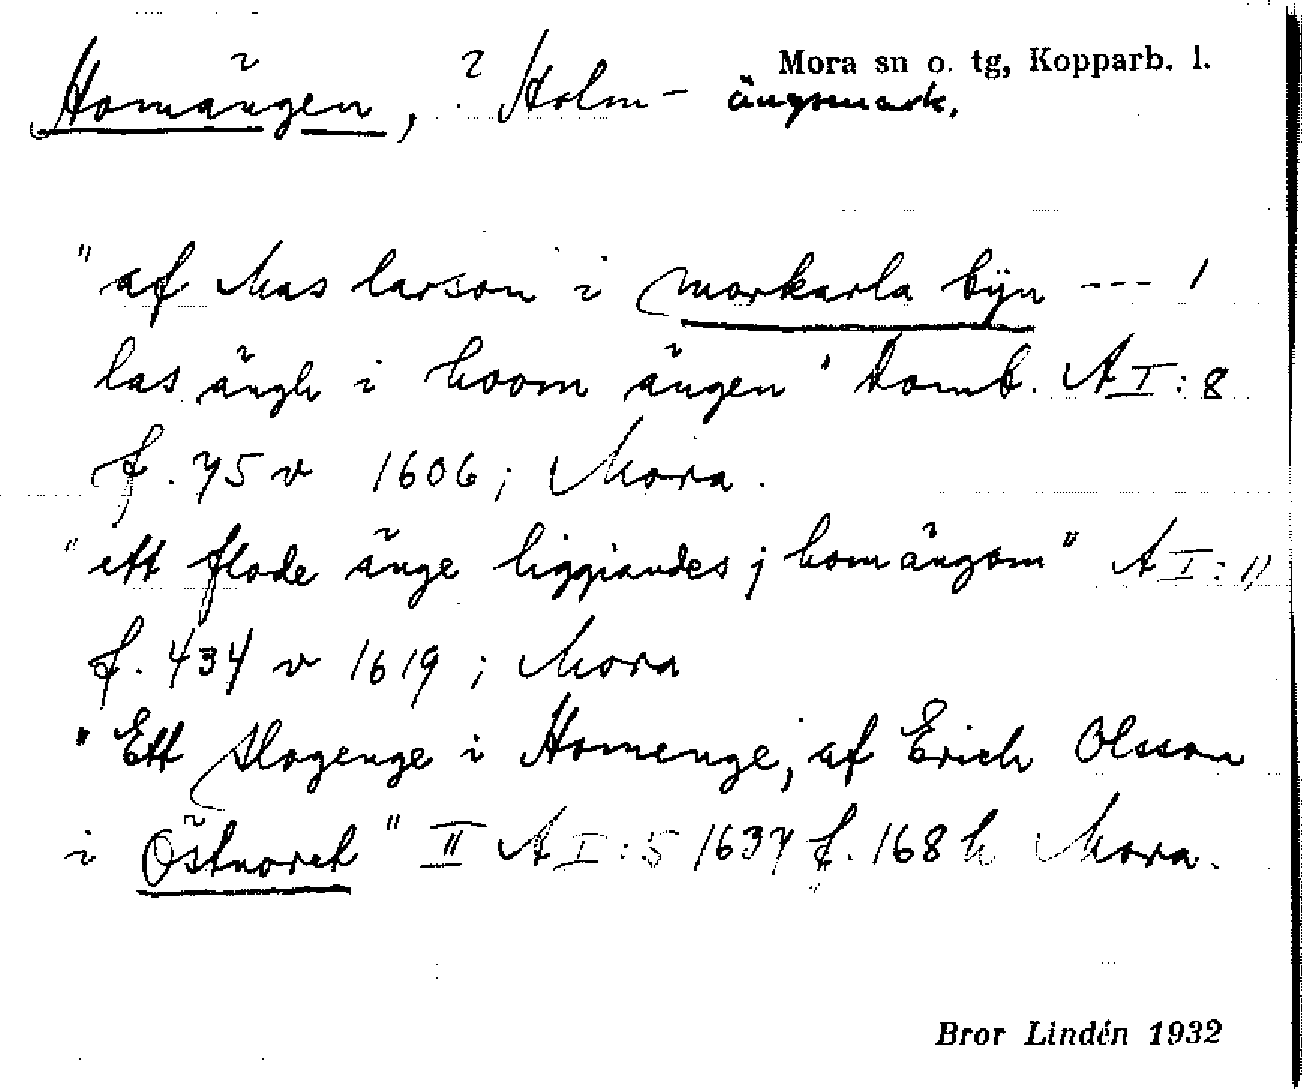 Mora sn o. tg, Kopparb. l.
Homängen, ? Holm- ängsmark.
"af Mas larson i morkarla býn --- 1
las ängh i hoom ängen" Domb. A I:8
f. 75 v 1606; Mora.
"ett flode änge liggiandes j homängom" A I:11
f. 434 v 1619; Mora
"Ett slogenge i Homenge, af Erich Olsson
i Östnoreth" II A I:5 1637 f. 168 h Mora.
Bror Lindén 1932